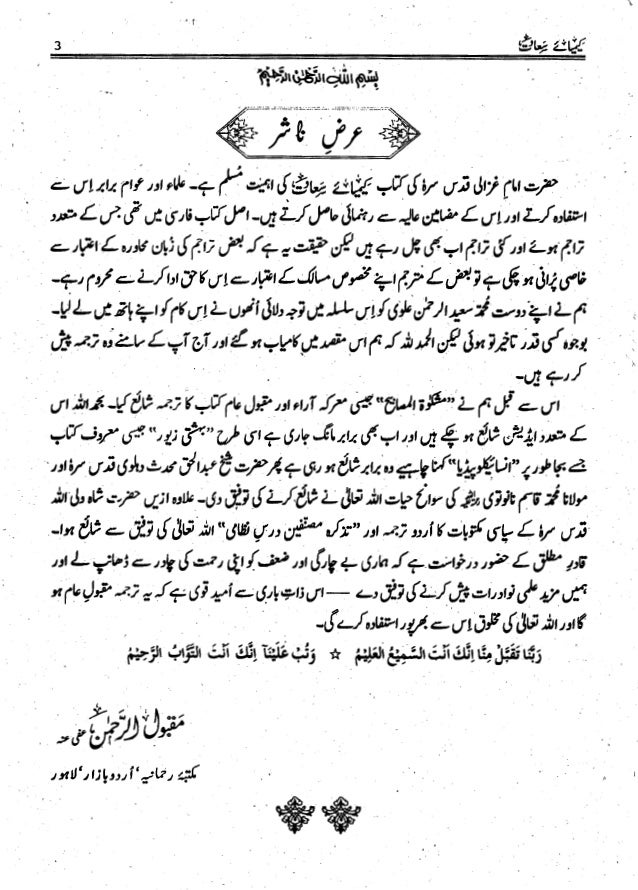 کیمیائے سعادت 3
بِسْمِ اللهِ الرَّحْمٰنِ الرَّحِیْمِ
عرضِ ناشر
حضرت امام غزالی قدس سرہٗ کی کتاب کیمیائے سعادت کی اہمیت مُسلم ہے۔ علماء اور عوام برابر اِس سے
استفادہ کرتے اور اِس کے مضامین عالیہ سے رہنمائی حاصل کرتے ہیں۔ اصل کتاب فارسی میں تھی جس کے متعدد
تراجم ہوئے اور کئی تراجم اب بھی چل رہے ہیں لیکن حقیقت یہ ہے کہ بعض تراجم کی زُبان محاورہ کے اعتبار سے
خاصی پُرانی ہو چکی ہے تو بعض کے مترجم اپنے مخصوص مسالک کے اعتبار سے اِس کا حق ادا کرنے سے محروم رہے۔
ہم نے اپنے دوست محمد سعید الرحمٰن علوی کو اِس سلسلہ میں توجہ دلائی اُنھوں نے اِس کام کو اپنے ہاتھ میں لے لیا۔
بوجوہ کسی قدر تاخیر تو ہوئی لیکن الحمد للہ کہ ہم اس مقصد میں کامیاب ہو گئے اور آج آپ کے سامنے وہ ترجمہ پیش
کر رہے ہیں۔
اس سے قبل ہم نے ”مشکوٰۃ المصابیح“ جیسی معرکہ آراء اور مقبول عام کتاب کا ترجمہ شائع کیا۔ بحمد اللہ اس
کے متعدد ایڈیشن شائع ہو چکے ہیں اور اب بھی برابر مانگ جاری ہے اسی طرح ”بہشتی زیور“ جیسی معروف کتاب
جسے بجا طور پر ”انسائیکلوپیڈیا“ کہنا چاہیے وہ برابر شائع ہو رہی ہے پھر حضرت شیخ عبد الحق محدث دہلوی قدس سرہٗ اور
مولانا محمد قاسم نانوتوی رحمہ اللہ کی سوانح حیات اللہ تعالیٰ نے شائع کرنے کی توفیق دی۔ علاوہ ازیں حضرت شاہ ولی اللہ
قدس سرہٗ کے سیاسی مکتوبات کا اُردو ترجمہ اور ”تذکرہ مصنفین درسِ نظامی“ اللہ تعالیٰ کی توفیق سے شائع ہوا۔
قادرِ مطلق کے حضور درخواست ہے کہ ہماری بے چارگی اور ضعف کو اپنی رحمت کی چادر سے ڈھانپ لے اور
ہمیں مزید علمی نوادرات پیش کرنے کی توفیق دے —— اس ذاتِ باری سے اُمید قوی ہے کہ یہ ترجمہ مقبولِ عام ہو
گا اور اللہ تعالیٰ کی مخلوق اِس سے بھرپور استفادہ کرے گی۔
رَبَّنَا تَقَبَّلْ مِنَّا اِنَّكَ اَنْتَ السَّمِیْعُ الْعَلِیْمُ ☆ وَتُبْ عَلَیْنَا اِنَّكَ اَنْتَ التَّوَّابُ الرَّحِیْمُ
مقبول الرَّحمٰن عفی عنہ
مکتبۂ رحمانیہ ٗ اُردو بازار ٗ لاہور